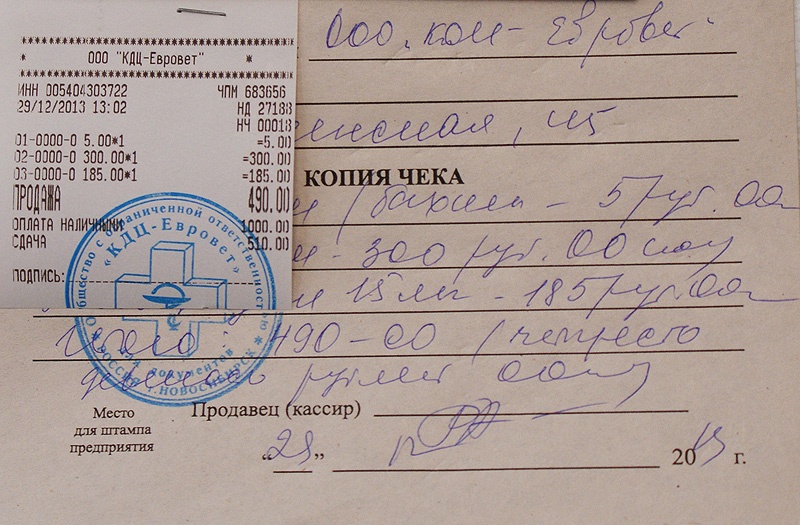 ООО "КДЦ-Евровет"
* ООО "КДЦ-Евровет" *
ИНН 005404303722 ЧПМ 683656
29/12/2013 13:02 НД 27188
НЧ 00018
01-0000-0 5.00*1 =5.00
02-0000-0 300.00*1 =300.00
03-0000-0 185.00*1 =185.00
ПРОДАЖА 490.00
ОПЛАТА НАЛИЧНЫМИ 1000.00
СДАЧА 510.00
ПОДПИСЬ:
енская, 45
КОПИЯ ЧЕКА
/бахилы - 5 руб. 00
- 300 руб. 00 коп
15 мл - 185 руб. 00
Итого: 490-00 /четыреста
девяносто рублей 00 коп/
Общество с ограниченной ответственностью
"КДЦ-Евровет"
Для документов
* РОССИЯ г. НОВОСИБИРСК *
Место
для штампа
предприятия
Продавец (кассир)
"29" 2013 г.